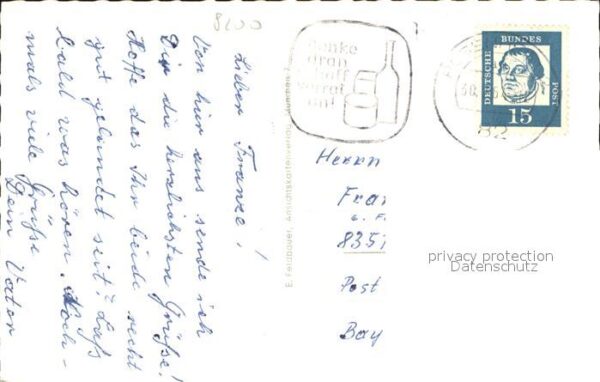 8200
Lieber Franze!
Von hier aus sende ich
Dir die herzlichsten Grüße!
Hoffe das Ihr beide recht
gut gelandet seit? Laß
bald was hören. Noch-
mals viele Grüße
Dein Vater
E. Feldbauer, Ansichtskartenverlag, München
denke
dran
schaff
vorrat
an!
82
DEUTSCHE
BUNDES
POST
15
Herrn
Fra
835
Post
Bay
privacy protection
Datenschutz